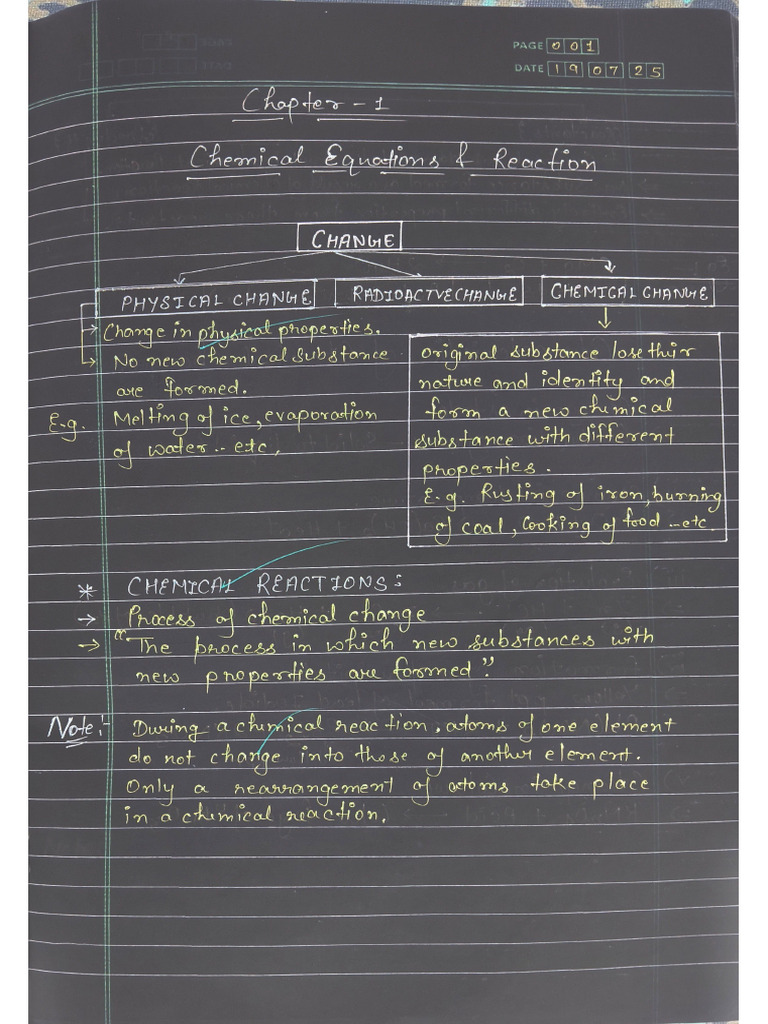 PAGE 001
DATE 19 07 25
Chapter - 1
Chemical Equations & Reaction
CHANGE
PHYSICAL CHANGE
RADIOACTVE CHANGE
CHEMICAL CHANGE
→ Change in physical properties.
→ No new chemical substance
are formed.
E.g. Melting of ice, evaporation
of water .. etc,
original substance lose thir
nature and identity and
form a new chemical
substance with different
properties.
E.g. Rusting of iron, burning
of coal, Cooking of food ..etc.
* CHEMICAL REACTIONS:
→ Process of chemical change
→ "The process in which new substances with
new properties are formed".
Note:- During a chemical reaction, atoms of one element
do not change into those of another element.
Only a rearrangement of atoms take place
in a chemical reaction.